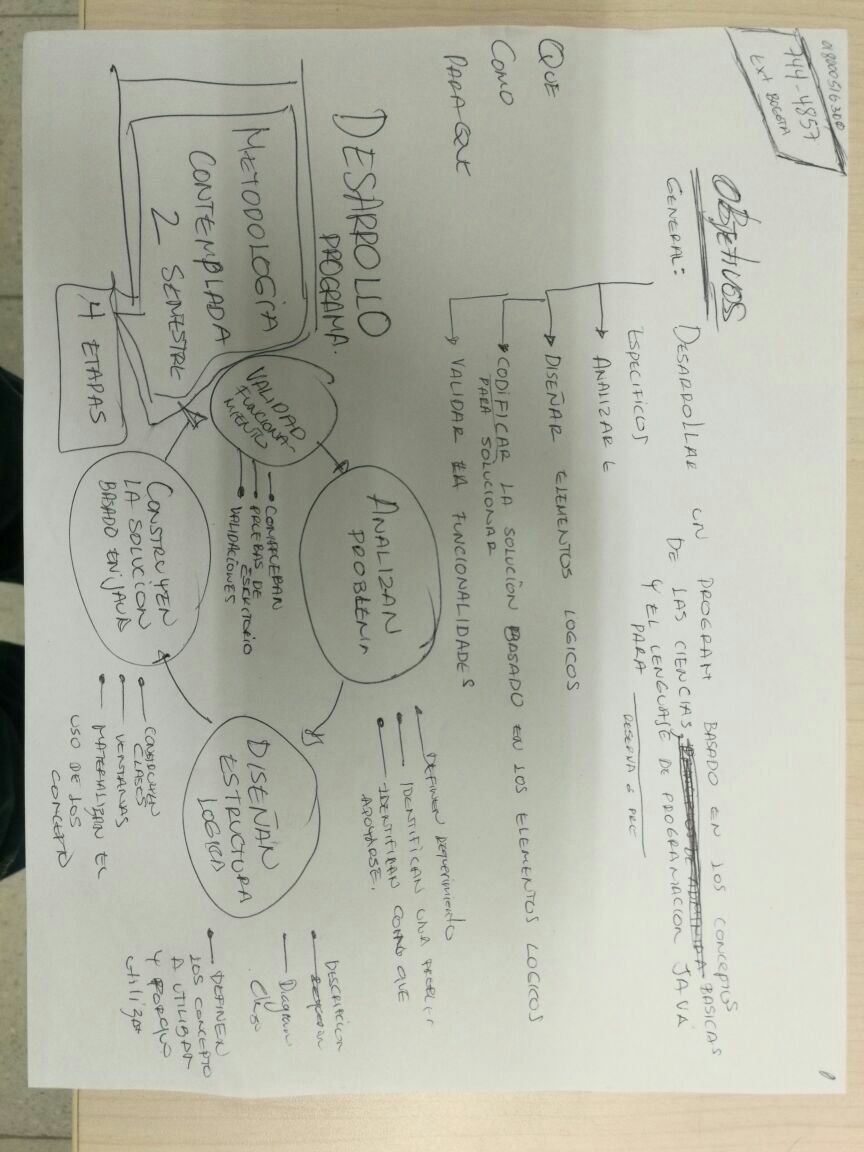 018000516300
744-4857
EXT BOGOTA
OBJETIVOS
GENERAL: DESARROLLAR UN PROGRAM BASADO EN LOS CONCEPTOS
DE LAS CIENCIAS BASICAS
Y EL LENGUAJE DE PROGRAMACION JAVA
PARA
ESPECIFICOS
QUE
ANALIZAR
COMO
DISEÑAR ELEMENTOS LOGICOS
PARA QUE
CODIFICAR LA SOLUCION BASADO EN LOS ELEMENTOS LOGICOS
PARA SOLUCIONAR
VALIDAR LA FUNCIONALIDADES
DESARROLLO
PROGRAMA.
METODOLOGIA
CONTEMBLADA
2 SEMESTRE
4 ETAPAS
ANALIZAN
PROBLEMA
DEFINEN REQUERIMIENTO
IDENTIFICAN UNA
IDENTIFICAN COMO QUE
APOYARSE.
DISEÑAN
ESTRUCTURA
LOGICA
DESCRIPCION
Diagram
DEFINEN
LOS CONCEPTO
A UTILIZAR
Y PORQUE
utilizar
CONSTRUYEN
LA SOLUCION
BASADO EN JAVA
CONSTRUYEN
CLASES
VENTANAS
MATERIALIZAN EL
USO DE LOS
CONCEPTO
VALIDAD
FUNCIONA-
MIENTO
PRUEBAS DE
ESCRITORIO
VALIDACIONES